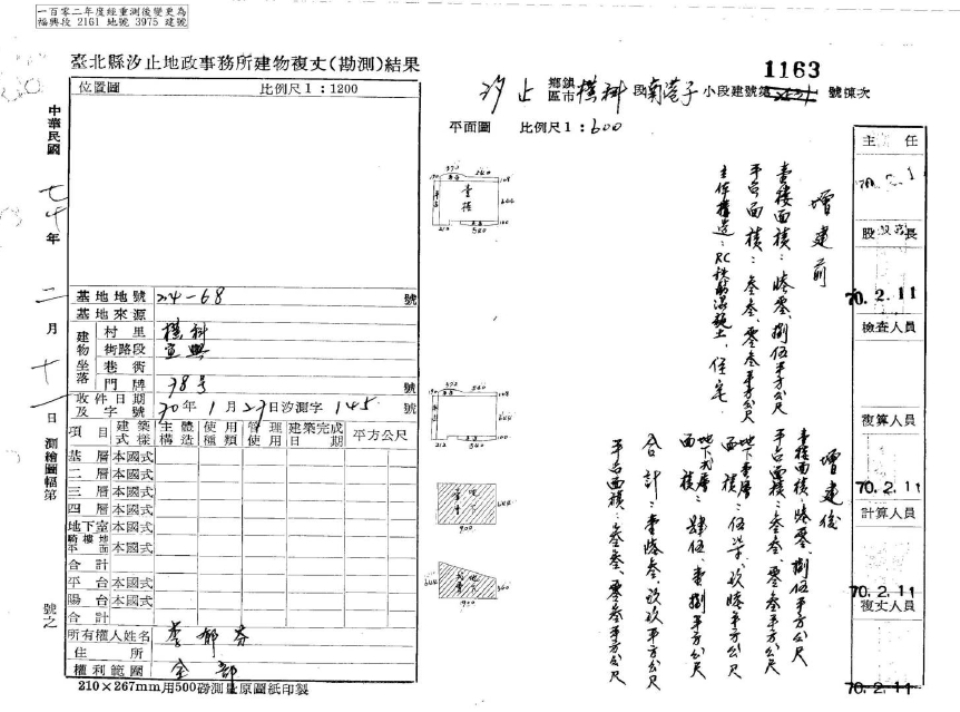 一百零二年度經重測後變更為
福興段 2161 地號 3975 建號
臺北縣汐止地政事務所建物複丈(勘測)結果
位置圖 比例尺1:1200
中華民國七十年二月十一日測繪圖幅第 號之
基地地號 24-68 號
基地來源
建物坐落
村里 橫科
街路段 宜興
巷衖
門牌 38号 號
收件日期及字號 70年1月27日汐測字145號
項目 建築式樣 主體構造 使用種類 管理使用 建築完成日期 平方公尺
基層 本國式
二層 本國式
三層 本國式
四層 本國式
地下室 本國式
騎樓地平面 本國式
合計
平台 本國式
陽台 本國式
合計
所有權人姓名 李郁芬
住所
權利範圍 全部
210×267mm用500磅測量原圖紙印製
1163
汐止 鄉鎮區市 橫科 段 南港子 小段建號第 號棟次
平面圖 比例尺1:600
增建前
壹樓面積:陸零、捌伍平方公尺
平台面積:叁叁、零叁平方公尺
主体構造:RC鉄筋混凝土、住宅
增建後
壹樓面積:陸零、捌伍平方公尺
平台面積:叁叁、零叁平方公尺
地下壹層面積:伍柒、玖陸平方公尺
地下弍層面積:肆伍、壹捌平方公尺
合計:壹陸叁、玖玖平方公尺
平台面積:叁叁、零叁平方公尺
壹樓
主任
股長
70.2.11
檢查人員
複算人員
70.2.11
計算人員
70.2.11
複丈人員
70.2.11